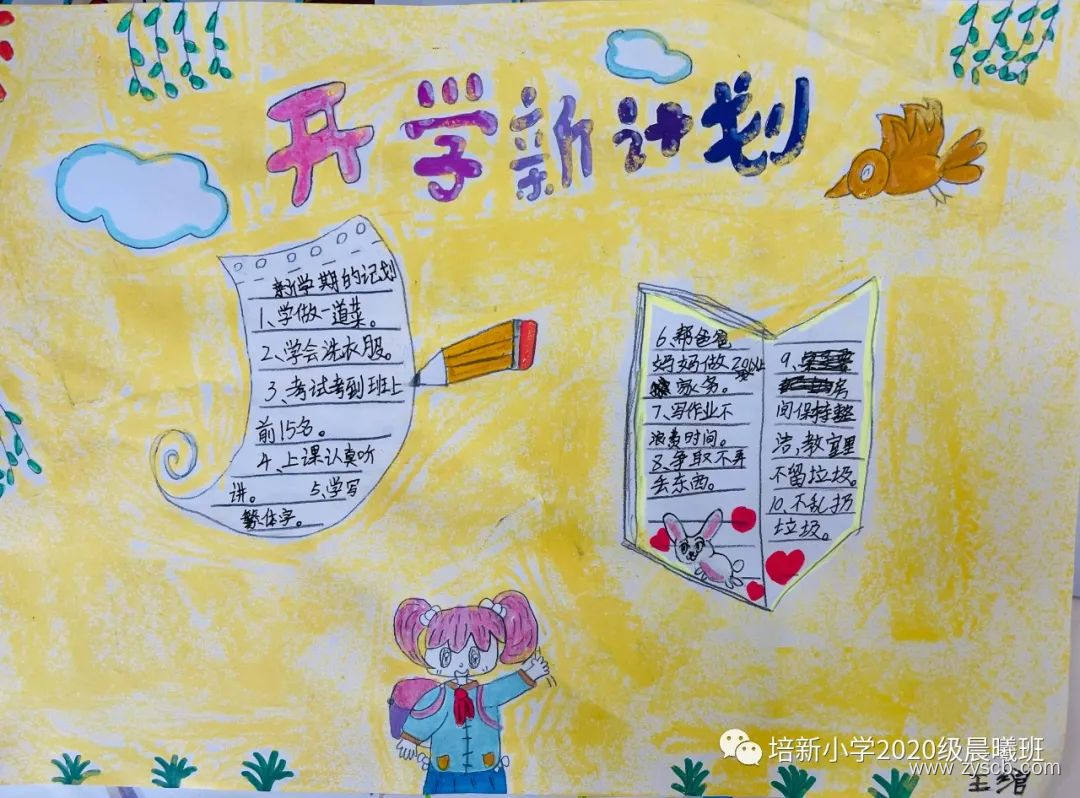 开学新计划
新学期的记划
1、学做一道菜。
2、学会洗衣服。
3、考试考到班上
前15名。
4、上课认真听
讲。 5、学写
繁体字。
6、帮爸爸
妈妈做
家务。
7、写作业不
浪费时间。
8、争取不再
丢东西。
9、
房
间保持整
洁,教室里
不留垃圾。
10、不乱扔
垃圾。
培新小学2020级晨曦班
www.zyscb.com